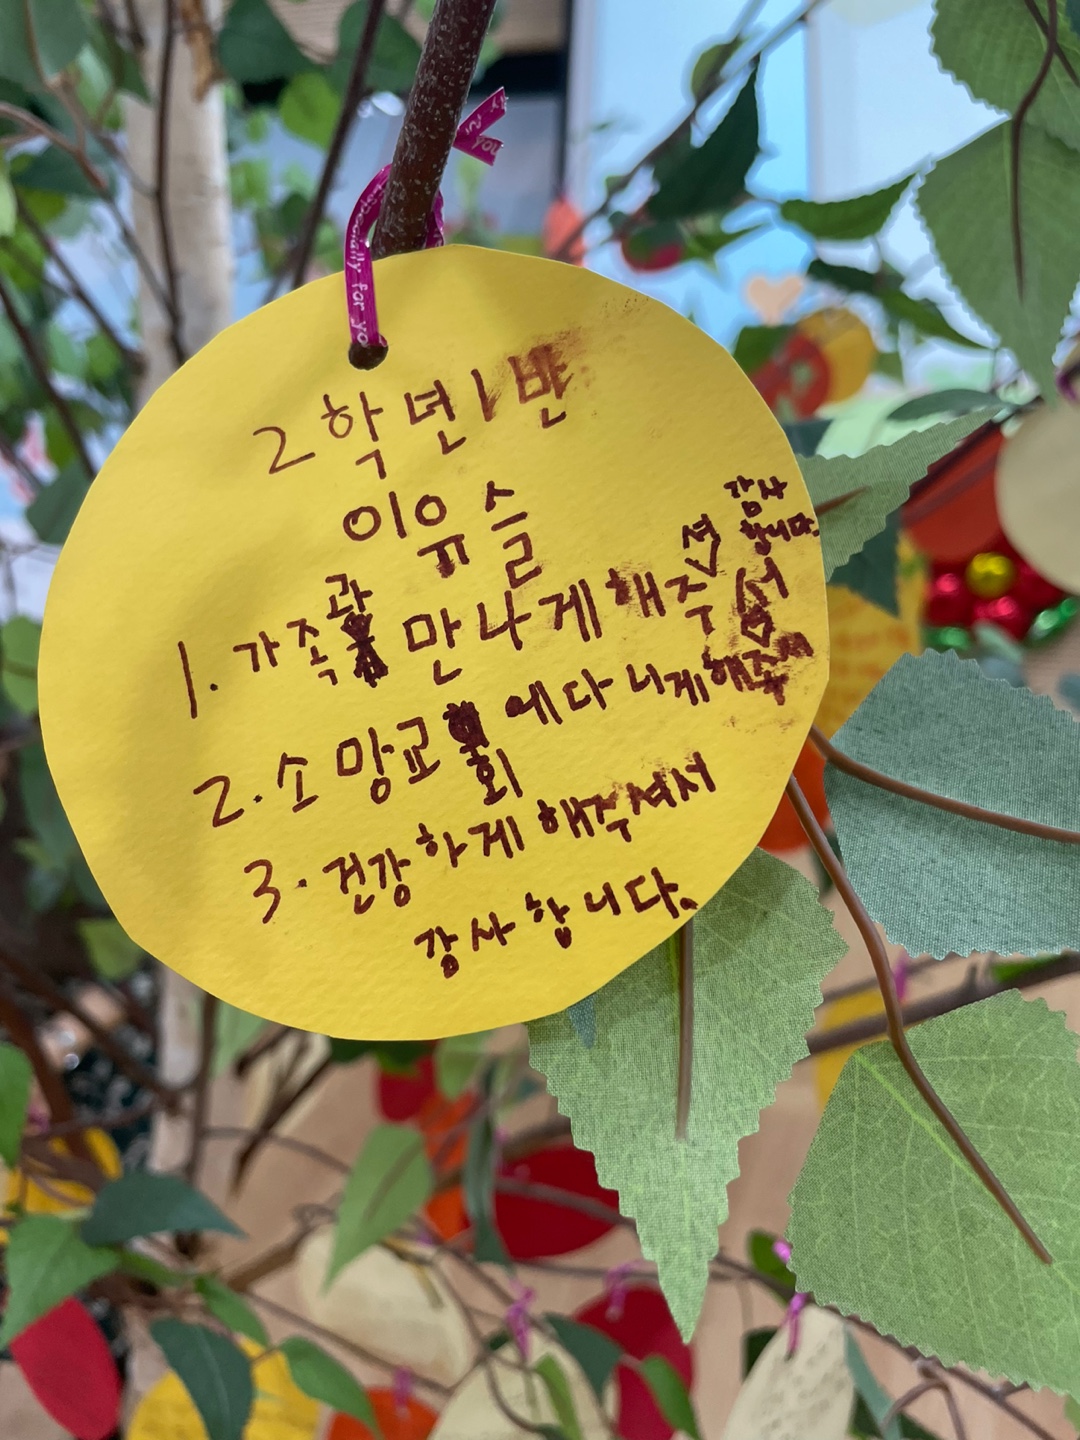 especially for yo
s you
2학년 1반
이유슬
1. 가족과 만나게 해주셔서 감사합니다.
2. 소망교회에 다니게 해주셔
3. 건강하게 해주셔서
감사합니다.